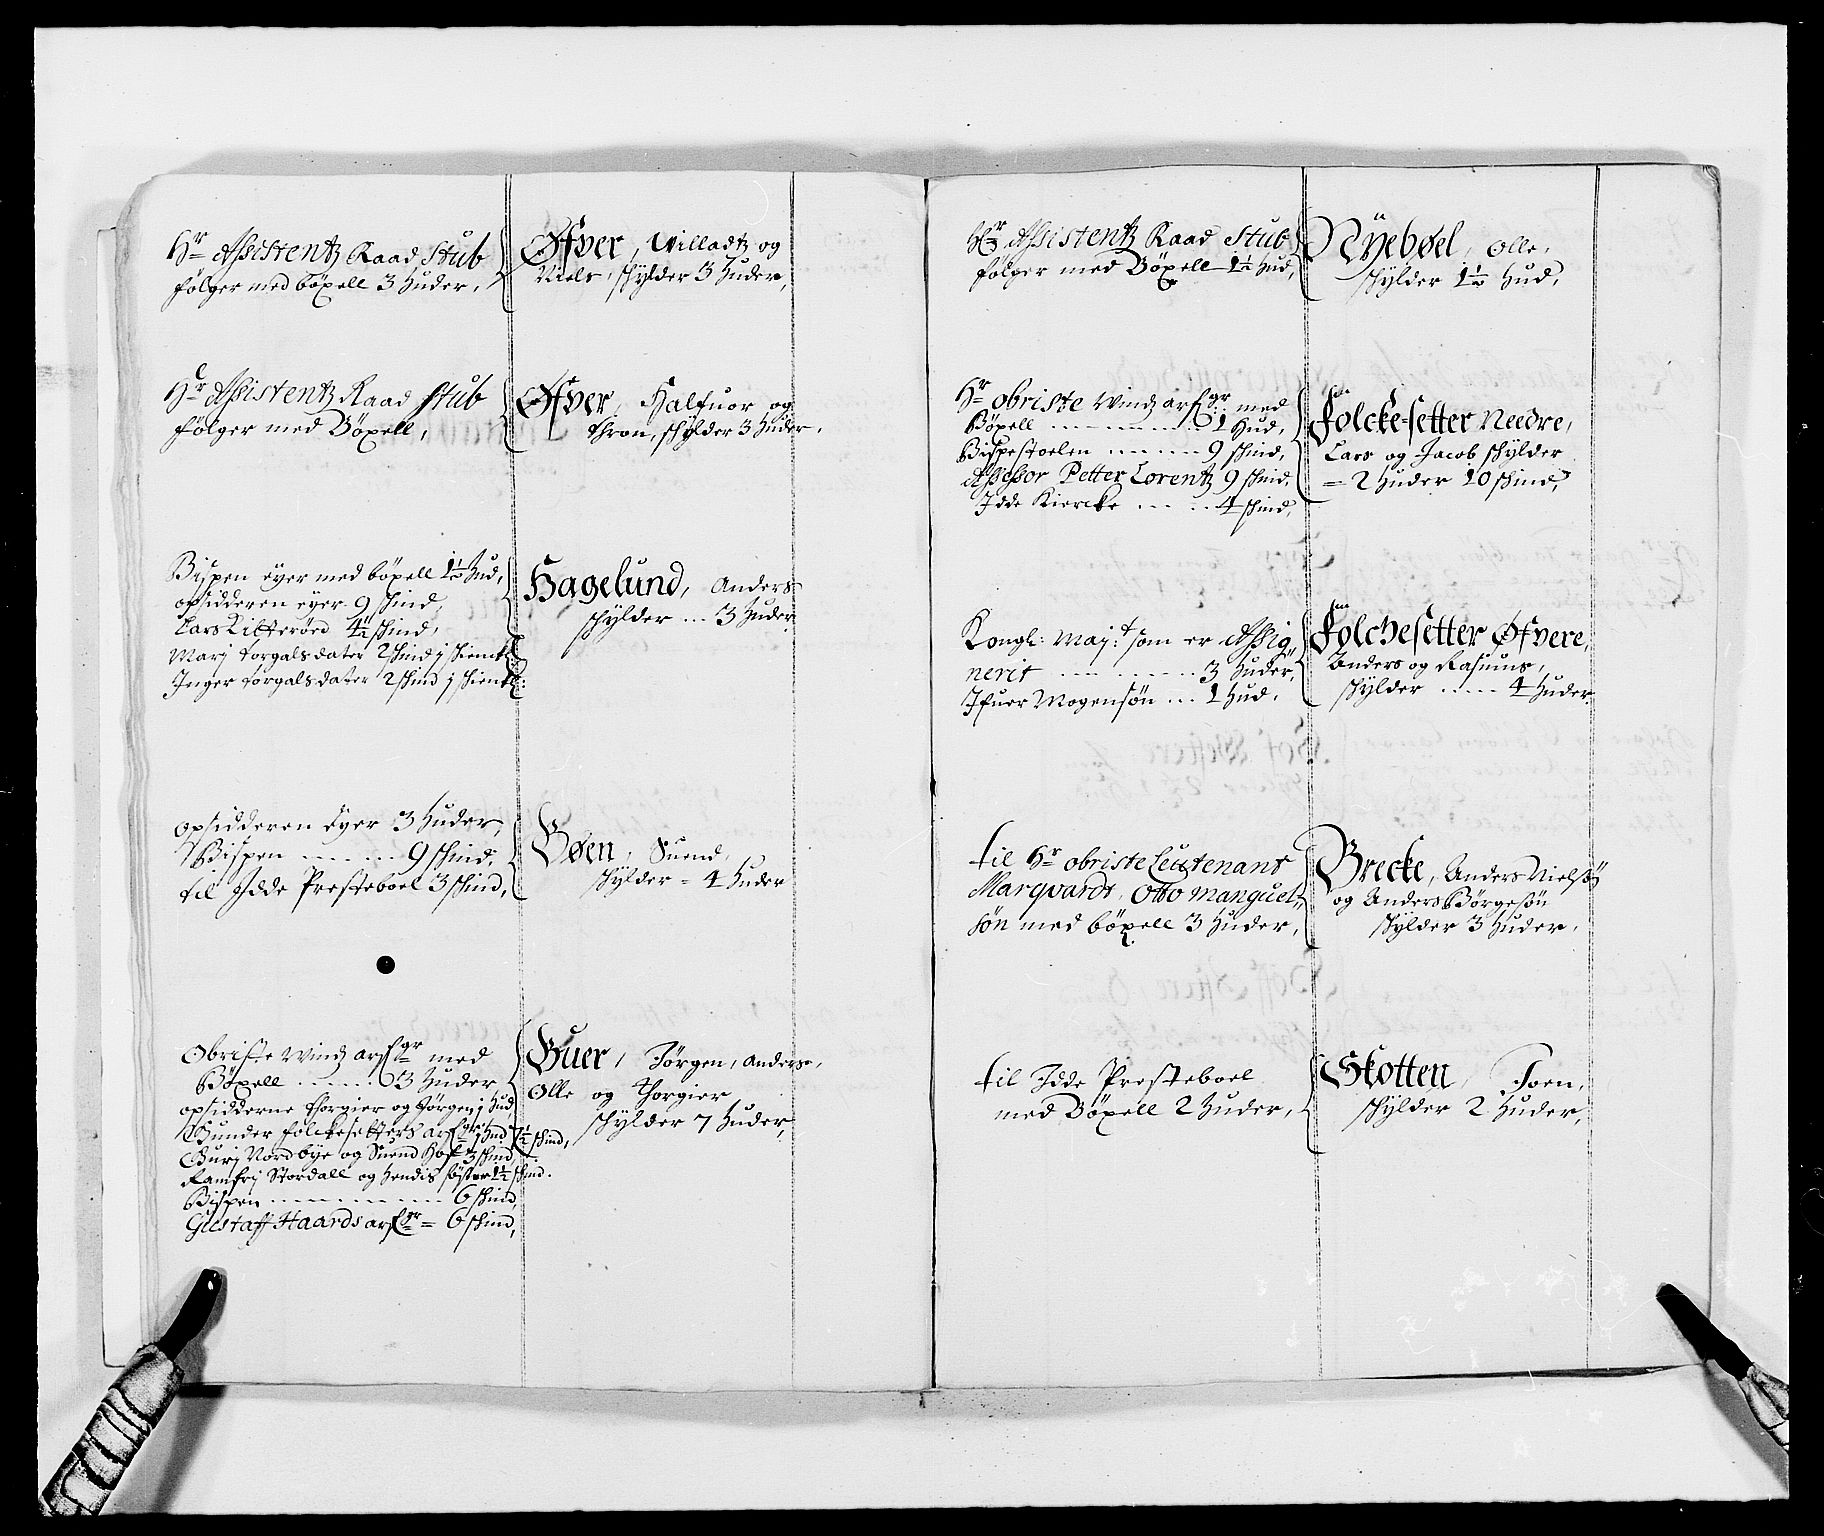 Hr Assistentz Raad Stub
følger med böxell 3 huder,
Øfver, Willadtz og
Niels, schÿlder 3 Huder,
Hr Assistentz Raad Stub
følger med Böxell,
Øfver, Halfuor og
thron, schÿlder 3 Huder.
Bispen eÿer med böxell 1½ Hud,
opsidderen eÿer 9 schind,
Lars 4½ schind,
Marj torgalsdater 2 schind j schienckl:
Inger torgalsdater 2 schind j schienckl:
Hagelund, Anders
schÿlder ... 3 Huder
opsidderen Eÿer 3 Huder,
Bispen ... 9 schind,
til Idde Presteboel 3 schind,
Bøen, Suend,
schÿlder = 4 Huder
Obriste Windtz arfgr med
Böxell ... 3 Huder
opsidderne thorgier og Jørgen j Hud
Gunder folckesetters arfgr j Hud 7½ schind,
Gurj Nordbÿe og Suend Hof 3 schind,
Ramfrj Stordall og hendis söster 1½ schind.
Bispen ... 6 schind,
Gustaff Haards arfgr = 6 schind,
Buer, Jörgen, Anders,
Olle og Thorgier
schÿlder 7 Huder,
Hr Assistentz Raad Stub
følger med Böxell 1½ Hud,
Nÿebøel, Olle,
schÿlder 1½ Hud,
Hr obriste Windtz arfgr med
Böxell ... 1 Hud,
Bispestoelen ... 9 schind,
Assessor Petter Lorentz 9 schind,
Idde Kiercke ... 4 schind,
Folcke-setter Needre,
Lars og Jacob schÿlder
= 2 Huder 10 schind,
Kongl: Maj:t som er Assig„
nerit ... 3 Huder,
Ifuer Mogensön ... 1 Hud.
Folchesetter Øfvere,
Anders og Rasmus,
schÿlder ... 4 Huder
til Hr obriste Leutenant
Marqvardt, Otto Manguel„
sön med böxell 3 Huder,
Brecke, Anders Nielsö
og Anders Börgesön
schÿlder 3 Huder,
til Idde Presteboel
med Böxell 2 Huder,
Skotten, Joen,
schÿlder 2 Huder,